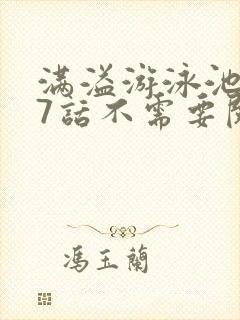 满溢游泳池
7話不需要
馮玉蘭